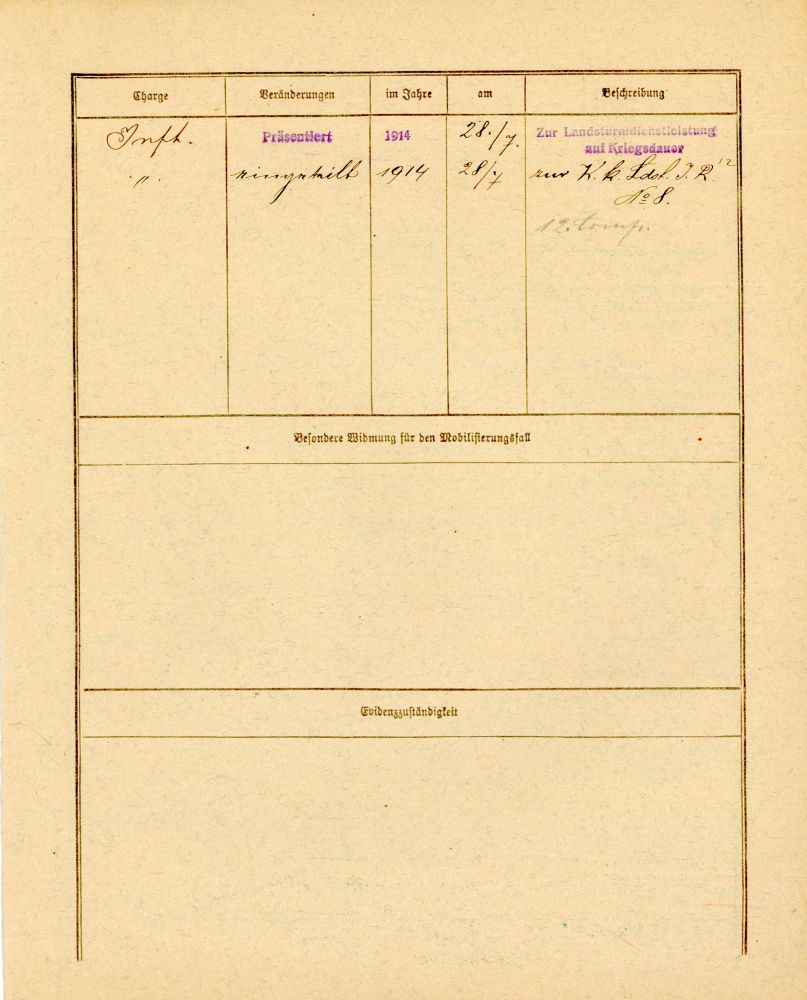 Charge Veränderungen im Jahre am Beschreibung
Infk. Präsentiert 1914 28./7. Zur Landsturmdienstleistung
auf Kriegsdauer
" eingeteilt 1914 28/7 zur K. k. Ldst. I. R.
No 8.
12. Comp.
Besondere Widmung für den Mobilisierungsfall
Evidenzzuständigkeit